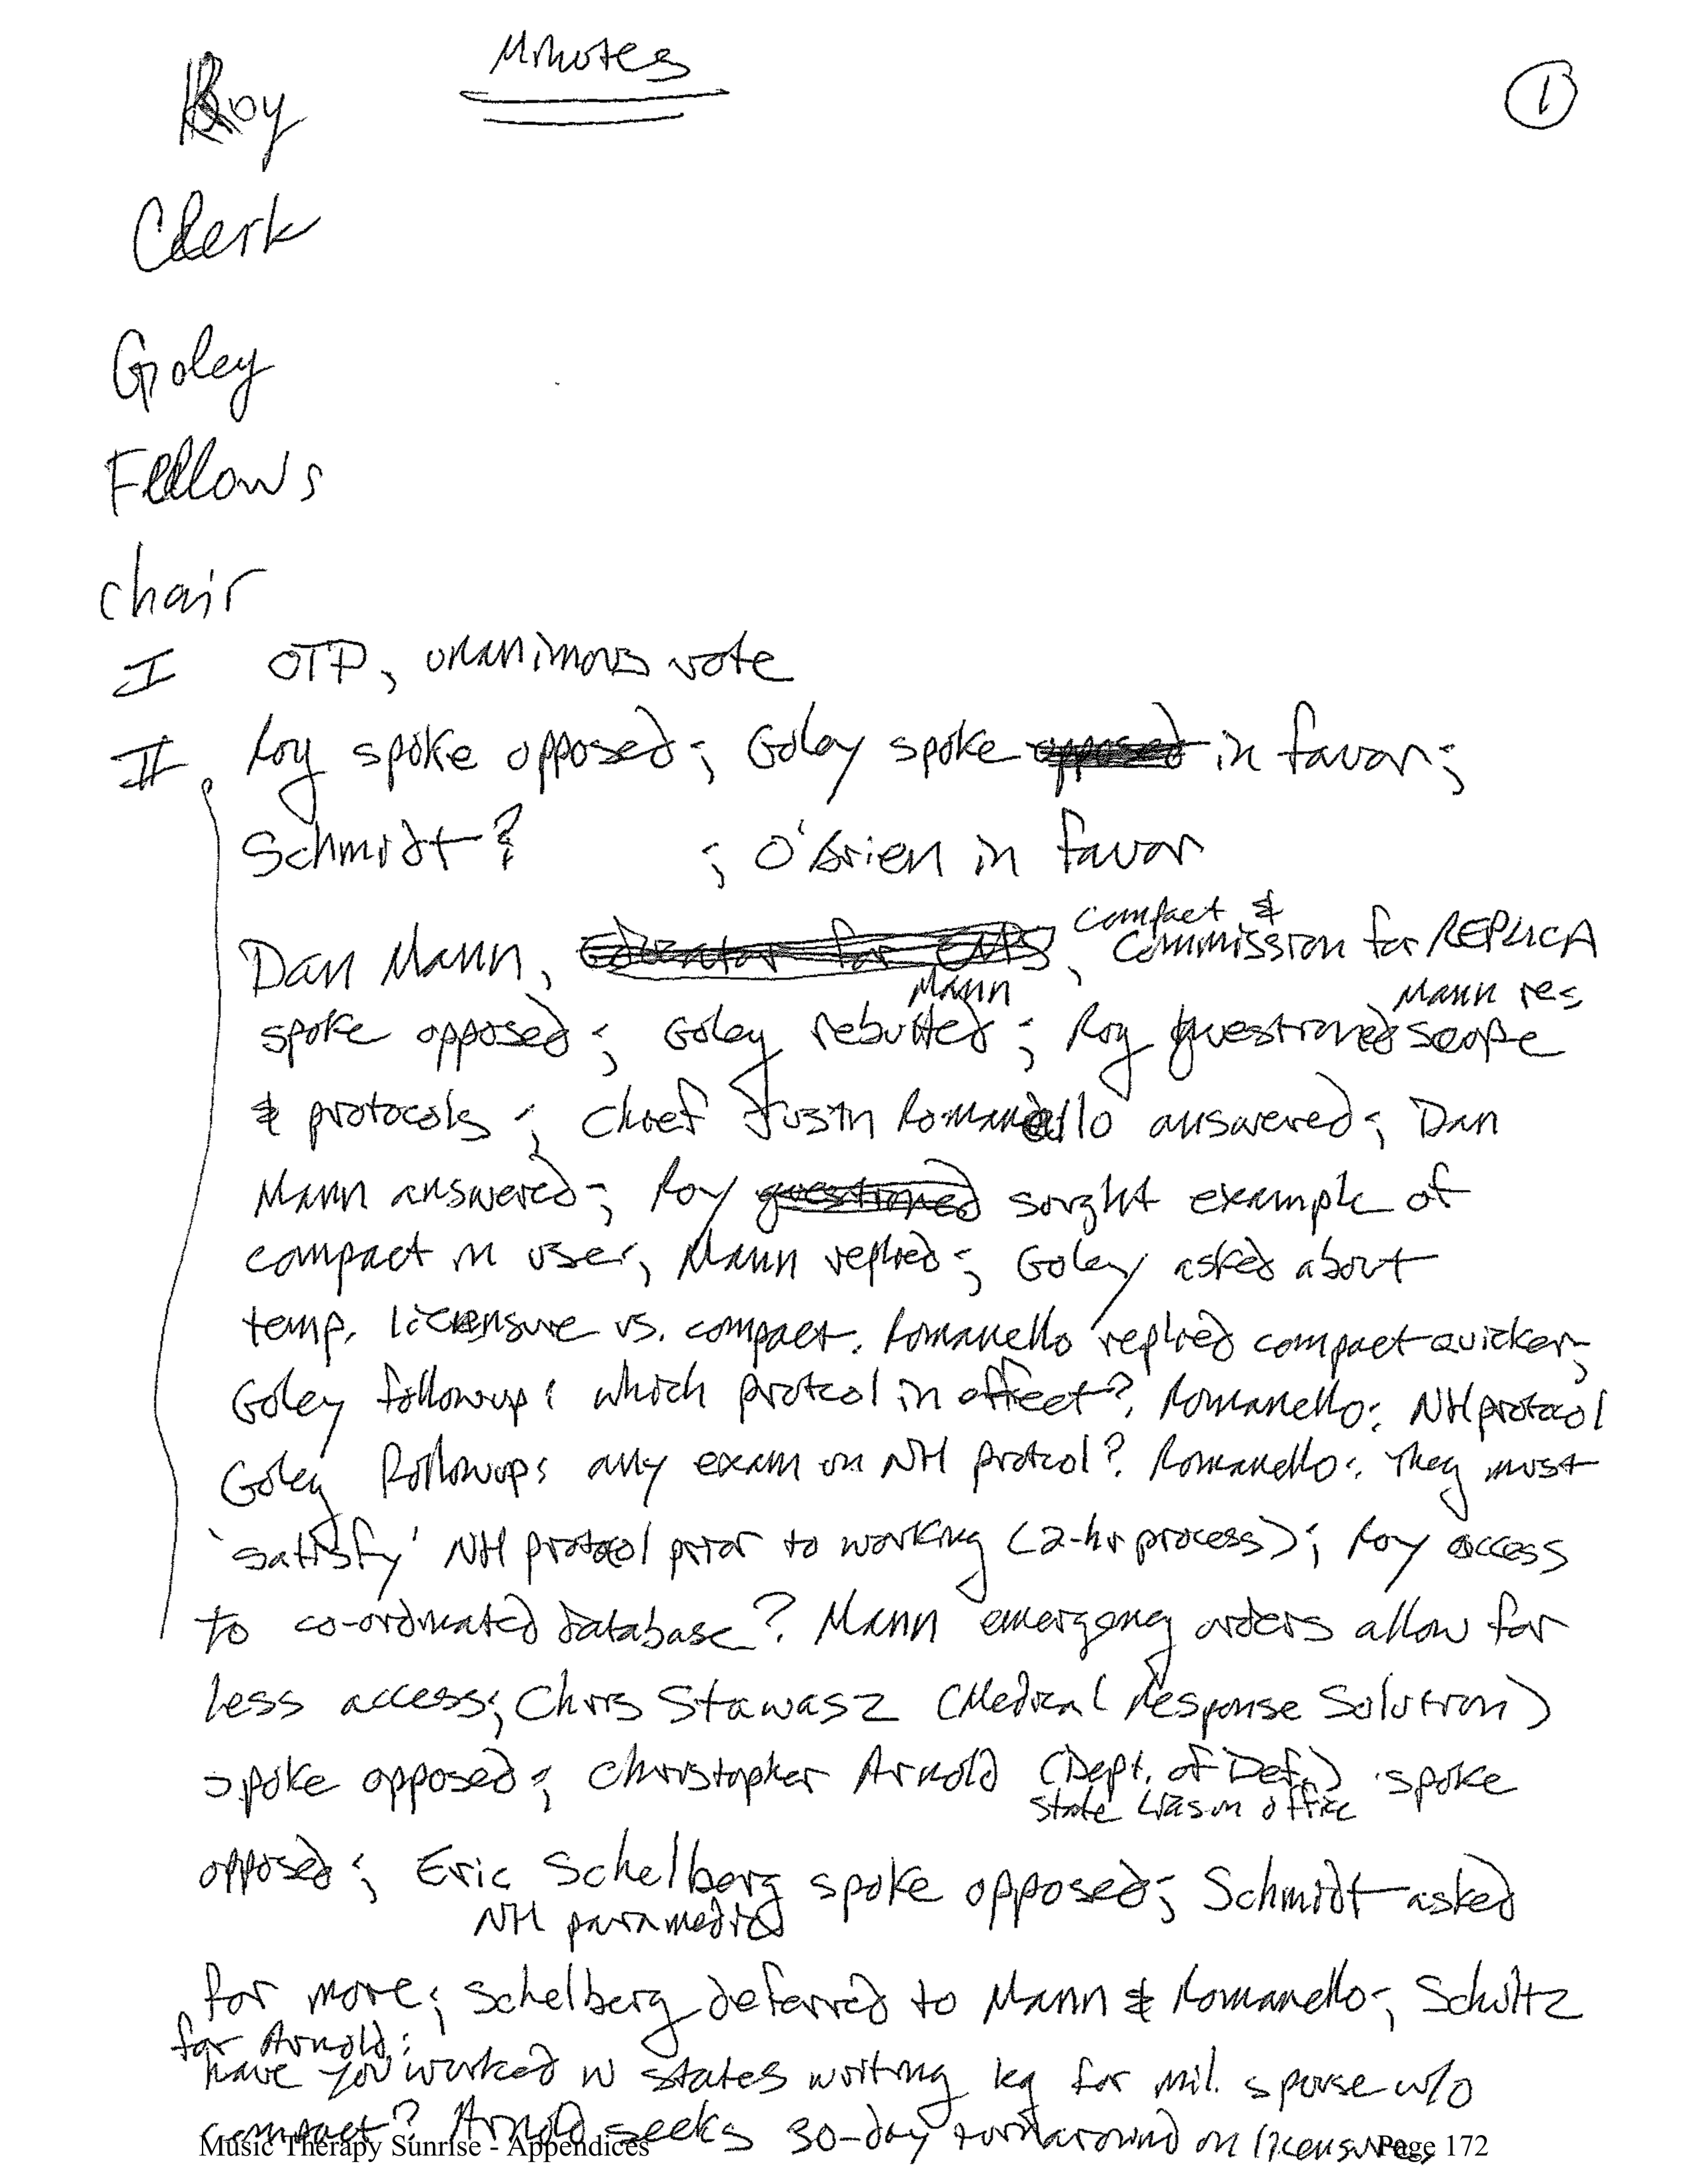 Minutes
①
Roy
Clerk
Goley
Fellows
chair
I OTP, unanimous vote
II Roy spoke opposed; Goley spoke opposed in favor;
Schmidt? ; O'Brien in favor
compact &
Dan Mann, Educator for EMS, Commission for REPLICA
Mann Mann res
spoke opposed; Goley rebutted; Roy questioned scope
& protocols; Chief Justin Romanello answered; Dan
Mann answered; Roy questioned sought example of
compact in use; Mann replied; Goley asked about
temp. licensure vs. compact. Romanello replied compact quicker;
Goley followup: which protcol in effect? Romanello: NH protocol
Goley followup: any exam on NH protcol? Romanello: They must
'satisfy' NH protocol prior to working (2-hr process); Roy access
to co-ordinated database? Mann emergency orders allow for
less access; Chris Stawasz (Medical Response Solution)
spoke opposed; Christopher Arnold (Dept. of Def.) spoke
state liason office
opposed; Eric Schelberg spoke opposed; Schmidt asked
NH paramedics
for more; Schelberg deferred to Mann & Romanello; Schultz
for Arnold:
have you worked w states writing leg for mil. spouse w/o
compact? Arnold seeks 30-day turnaround on licensures
Music Therapy Sunrise - Appendices Page 172